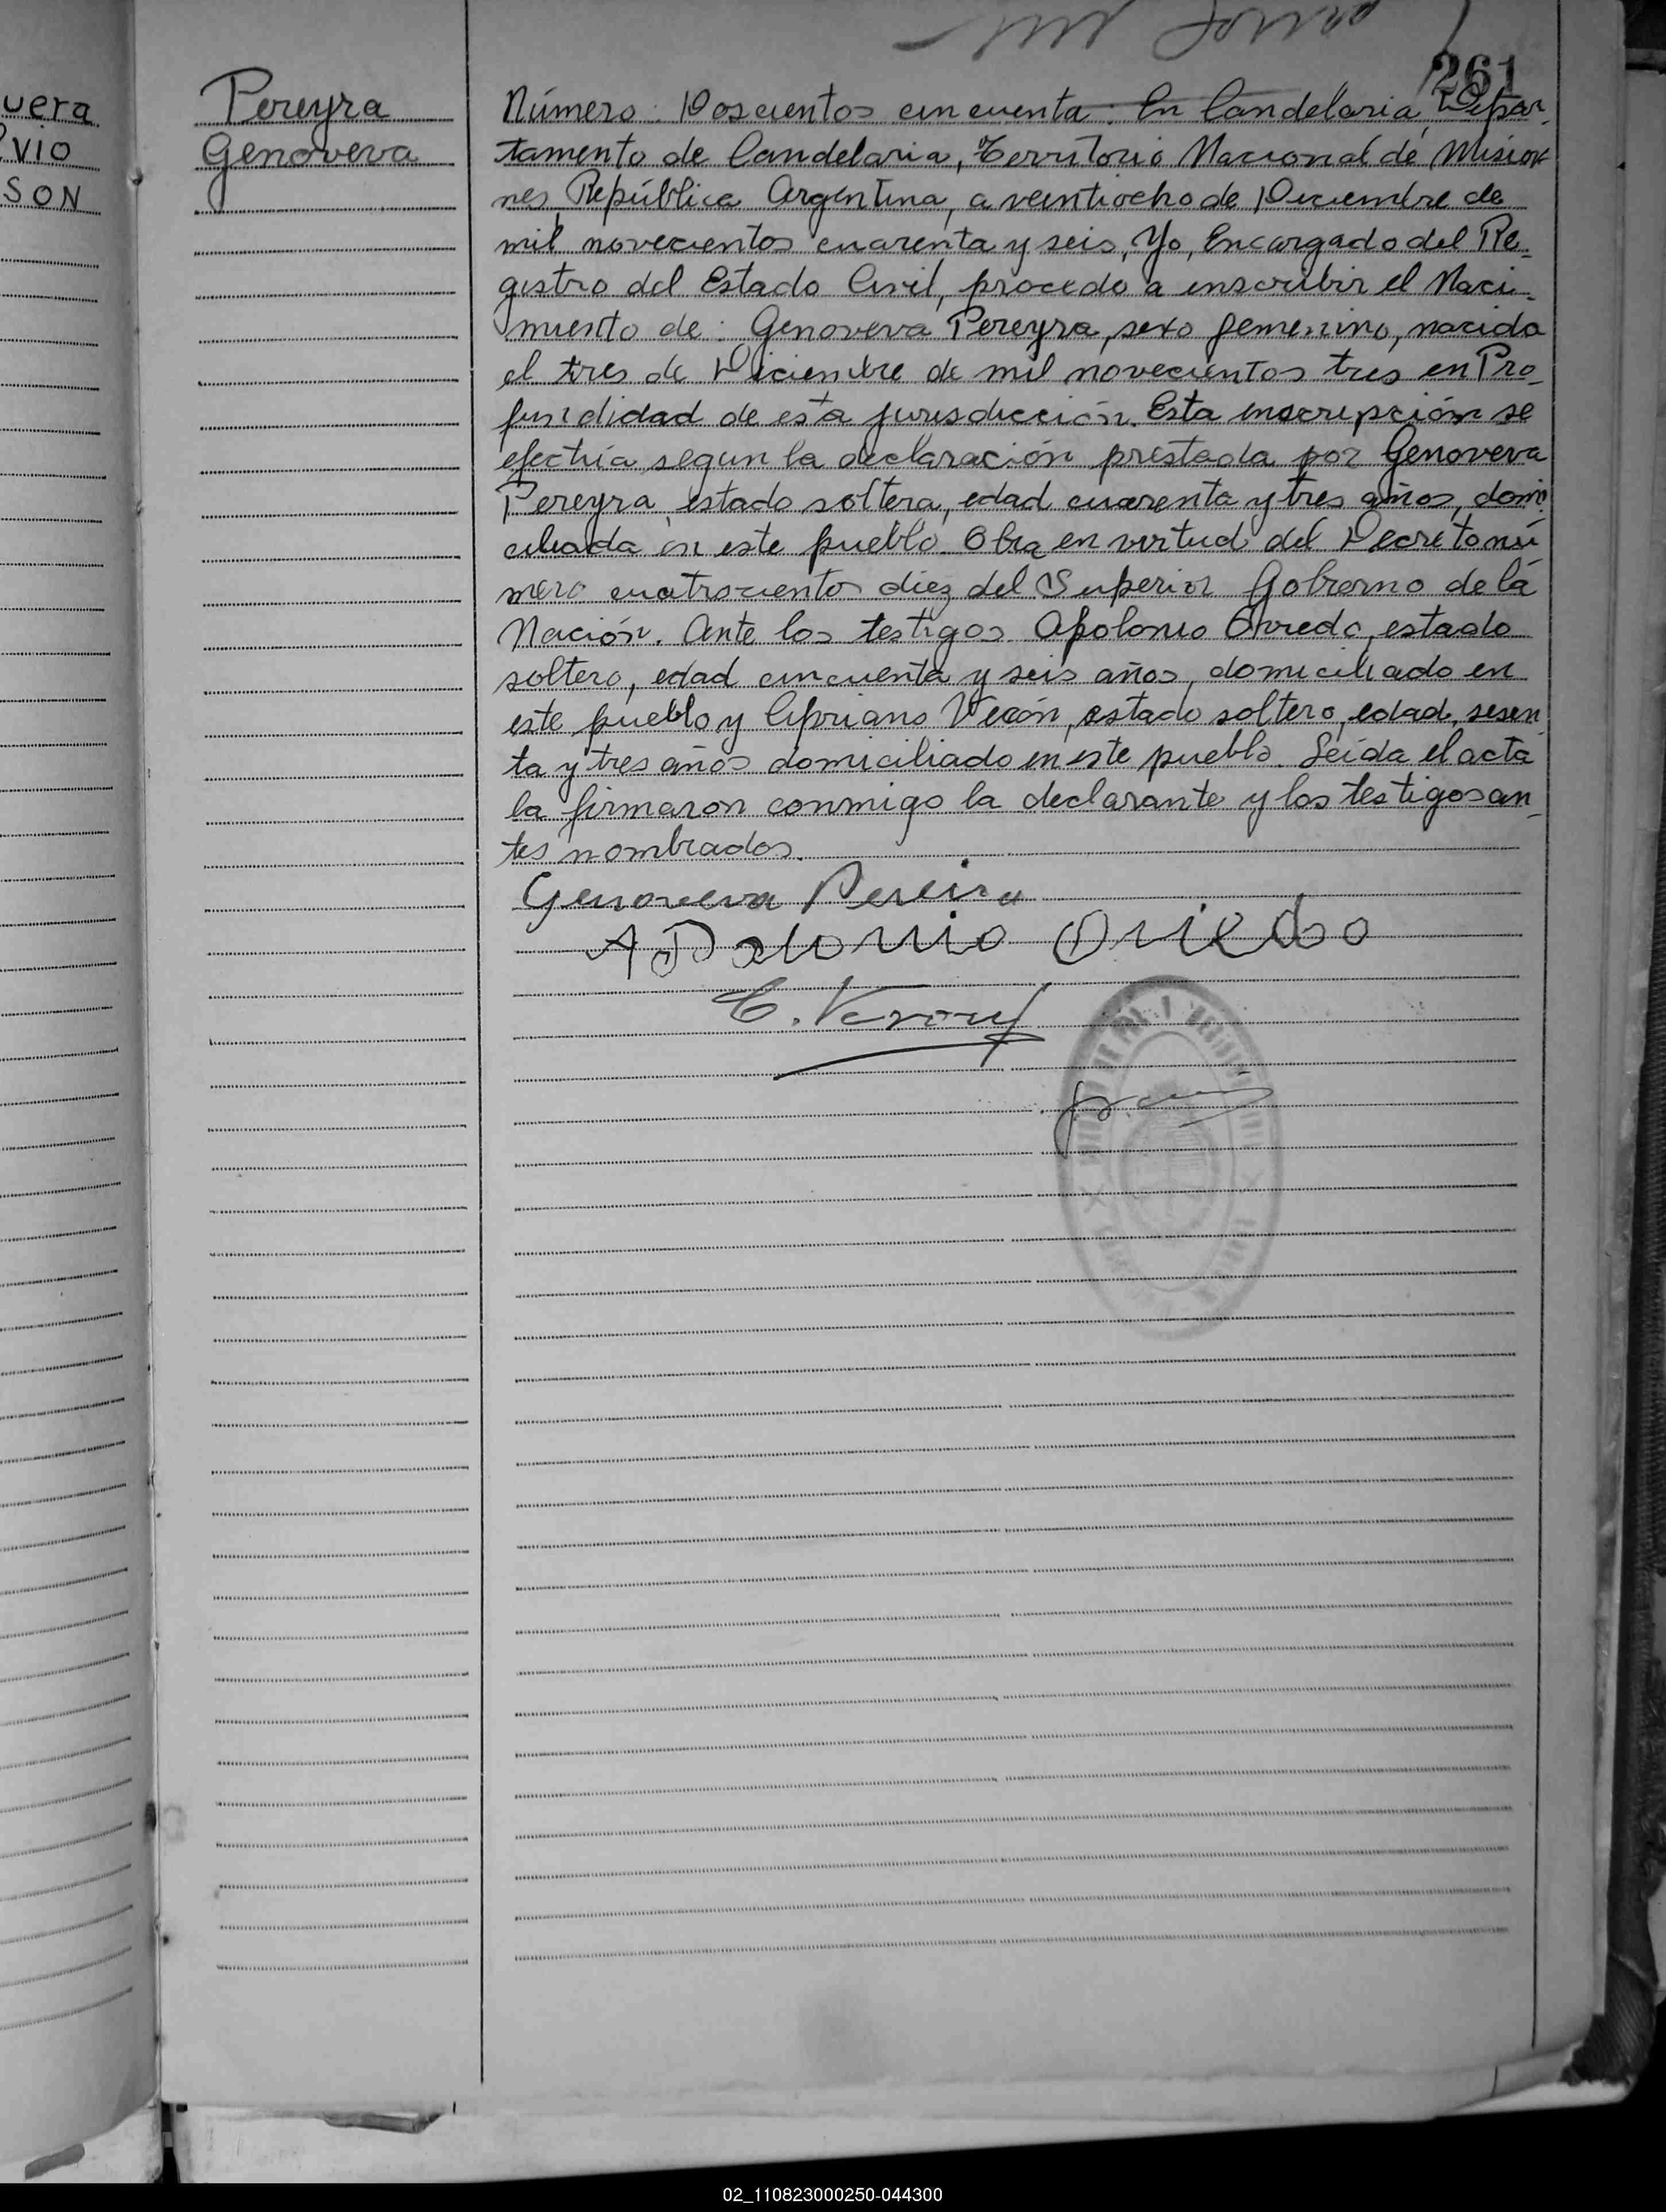 261
uera
vio
SON
Pereyra
Genoveva
Número: Doscientos cincuenta: En Candelaria, Depar-
tamento de Candelaria, Territorio Nacional de Misio-
nes, República Argentina, a veintiocho de Diciembre de
mil novecientos cuarenta y seis, Yo, Encargado del Re-
gistro del Estado Civil, procedo a inscribir el Naci-
miento de: Genoveva Pereyra, sexo femenino, nacida
el tres de Diciembre de mil novecientos tres en Pro-
fundidad de esta jurisdicción. Esta inscripción se
efectúa segun la declaración prestada por Genoveva
Pereyra, estado soltera, edad cuarenta y tres años, domi-
ciliada en este pueblo. Obra en virtud del Decreto nú-
mero cuatrocientos diez del Superior Gobierno de la
Nación. Ante los testigos Apolonio Oviedo, estado
soltero, edad cincuenta y seis años, domiciliado en
este pueblo y Cipriano Verón, estado soltero, edad, sesen-
ta y tres años domiciliado en este pueblo. Leída el acta
la firmaron conmigo la declarante y los testigos an-
tes nombrados.
Genoveva Pereira
Apolonio Oviedo
C. Veron
02_110823000250-044300